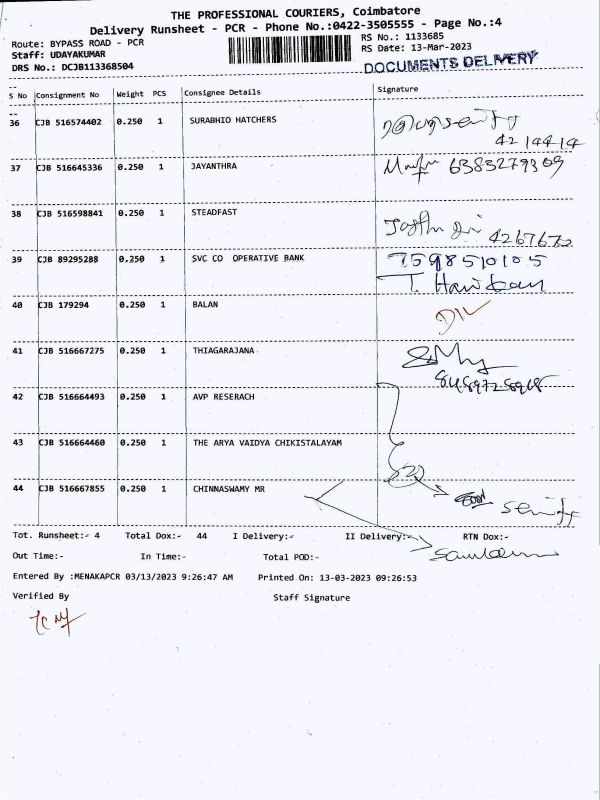 THE PROFESSIONAL COURIERS, Coimbatore
Delivery Runsheet - PCR - Phone No.:0422-3505555 - Page No.:4
Route: BYPASS ROAD - PCR RS No.: 1133685
Staff: UDAYAKUMAR RS Date: 13-Mar-2023
DRS No.: DCJB113368504 DOCUMENTS DELIVERY
S No Consignment No Weight PCS Consignee Details Signature
36 CJB 516574402 0.250 1 SURABHIO HATCHERS
4214414
37 CJB 516645336 0.250 1 JAYANTHRA 6383279309
38 CJB 516598841 0.250 1 STEADFAST
4267672
39 CJB 89295288 0.250 1 SVC CO OPERATIVE BANK 7598510105
40 CJB 179294 0.250 1 BALAN
41 CJB 516667275 0.250 1 THIAGARAJANA
42 CJB 516664493 0.250 1 AVP RESERACH
43 CJB 516664460 0.250 1 THE ARYA VAIDYA CHIKISTALAYAM
44 CJB 516667855 0.250 1 CHINNASWAMY MR
Tot. Runsheet:- 4 Total Dox:- 44 I Delivery:- II Delivery:- RTN Dox:-
Out Time:- In Time:- Total POD:-
Entered By :MENAKAPCR 03/13/2023 9:26:47 AM Printed On: 13-03-2023 09:26:53
Verified By Staff Signature